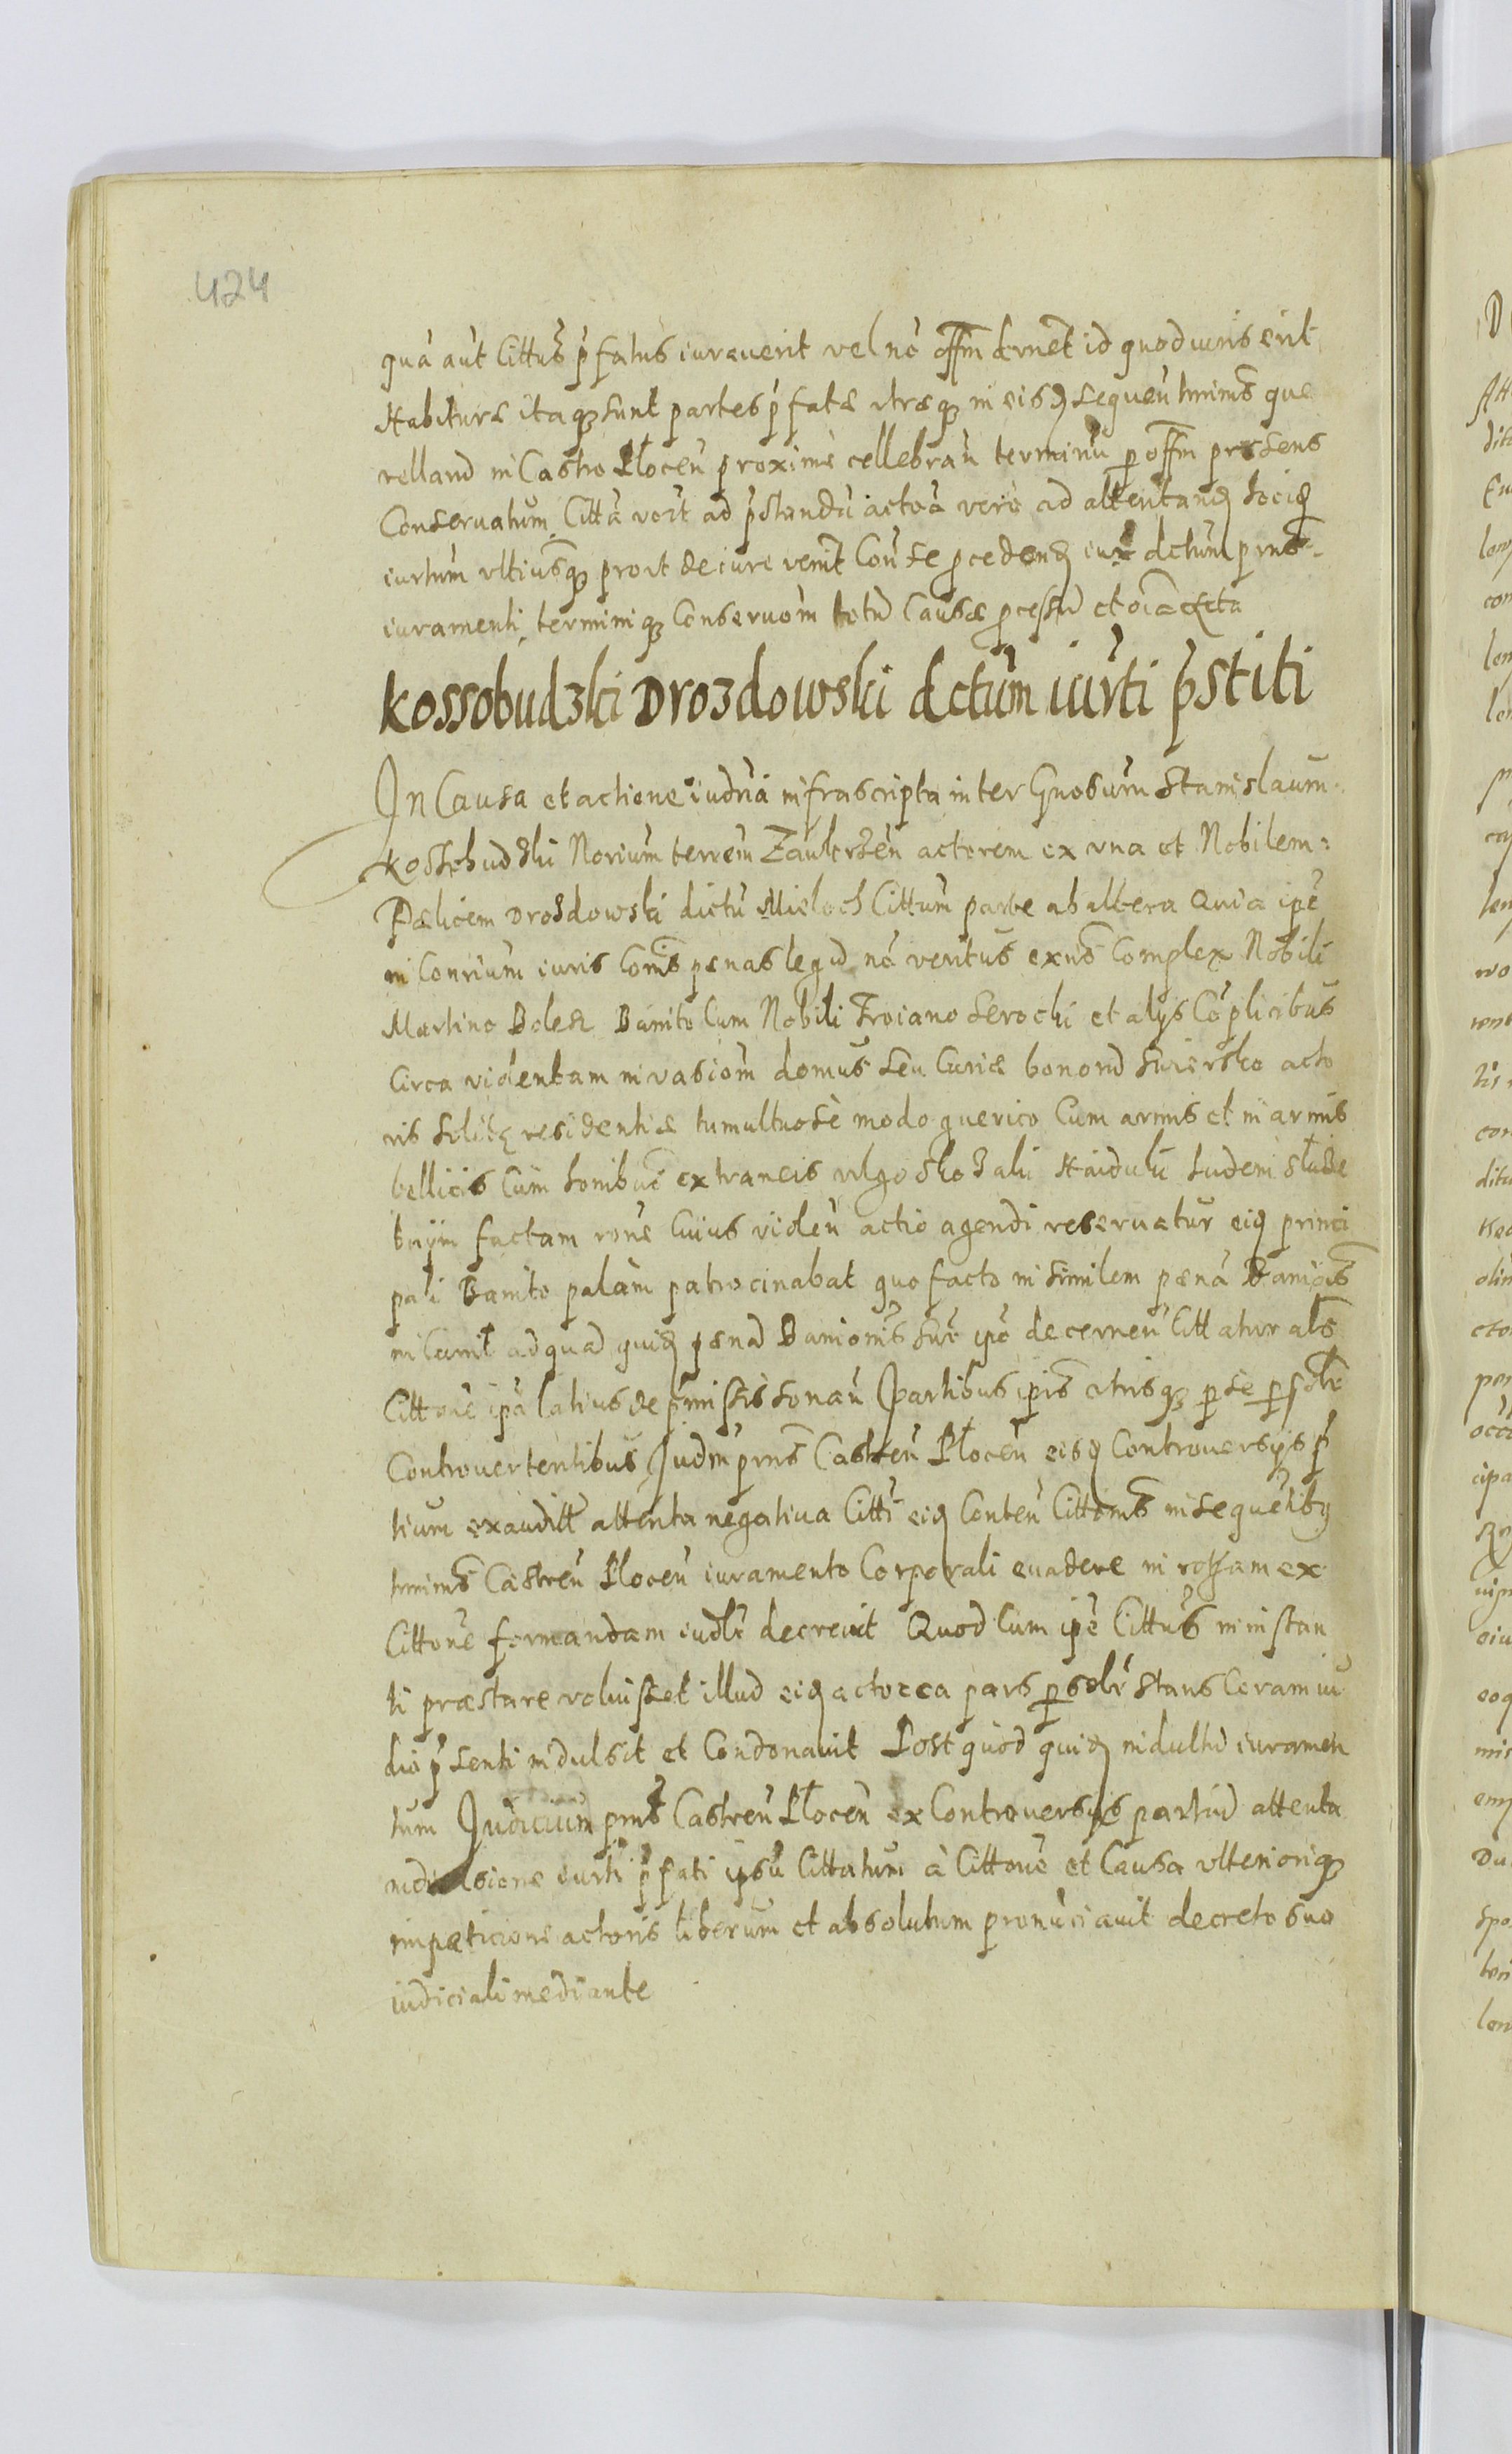 424
quá aút Cittús pfatus iurauerit vel nó offm dcrnet id quod iuris erit
Habituræ itaq sunt partes pfatæ vtræq in eisd sequeń tminis que
relland in Castro Płoceń proximè cellebrań terminú p offm præsens
Conseruatum Cittá voit ad pstandú actoá verò ad attentand
iurtum vltiusq prout de iure venit Couse pcedend dctum pns
iuramenti terminiq Conseruom totú Causæ pcessu et oia acta
Kossobudzki Drozdowski dctum iurti pstiti
In Causa et actione iudria infrascripta inter Gnosum Stanislaum
Kossobudzki Norium terrem Zaukrzeń actorem ex vna et Nobilem
Fælicem Drozdowski dictú Mieloch Cittum parte ab altera Quia ipe
in Conrium iuris Comis pænas legu nó veritus exns Complex Nobili
Martino Bolesz Banito Cum Nobili Troiano Serocki et alijs Cóplicibus
Circa videntam inuasiom domus seu Curiæ bonorú Swiersko acto
ris solitę residentiæ tumultuosè modo guerico Cum armis et in armis
bellicis Cum homibus extraneis vlgo Kozaki Haiduki
factam rone Cuius videń actio agendi reseruatur eid princi
pali Banito palàm patrocinabat quo facto in similem pæná Banionis
incurrit ad quad quid pænd Banionis sup ipo decerneń Cittatur als
Cittone ipá latius de pmissis sonań Partibus ipis vtrisq p se psolr
Controuertentibus Judm pns Castreń Płoceń eisd Controuersijs p
tium exauditis attenta negatiua Citti eid Conteń Cittonis in sequétibq
tminis Castreń Płoceń iuramento Corporali euadere in rottam ex
Cittone formandam iudlr decreuit Quod Cum ipe Cittus in instan
ti præstare voluisset illud eid actorea pars psolr stans Coram iu
dio psenti indulsit et Condonauit Postquod quid indultú iuramen
tum Judicium pns Castreń Płoceń ex Controuersijs partiú attenta
indulsione iurti pfati ipsú Cittatum à Cittone et Causa vlteriorique
impæticione actoris liberum et absolutum pronúciauit decreto suo
iudiciali mediante